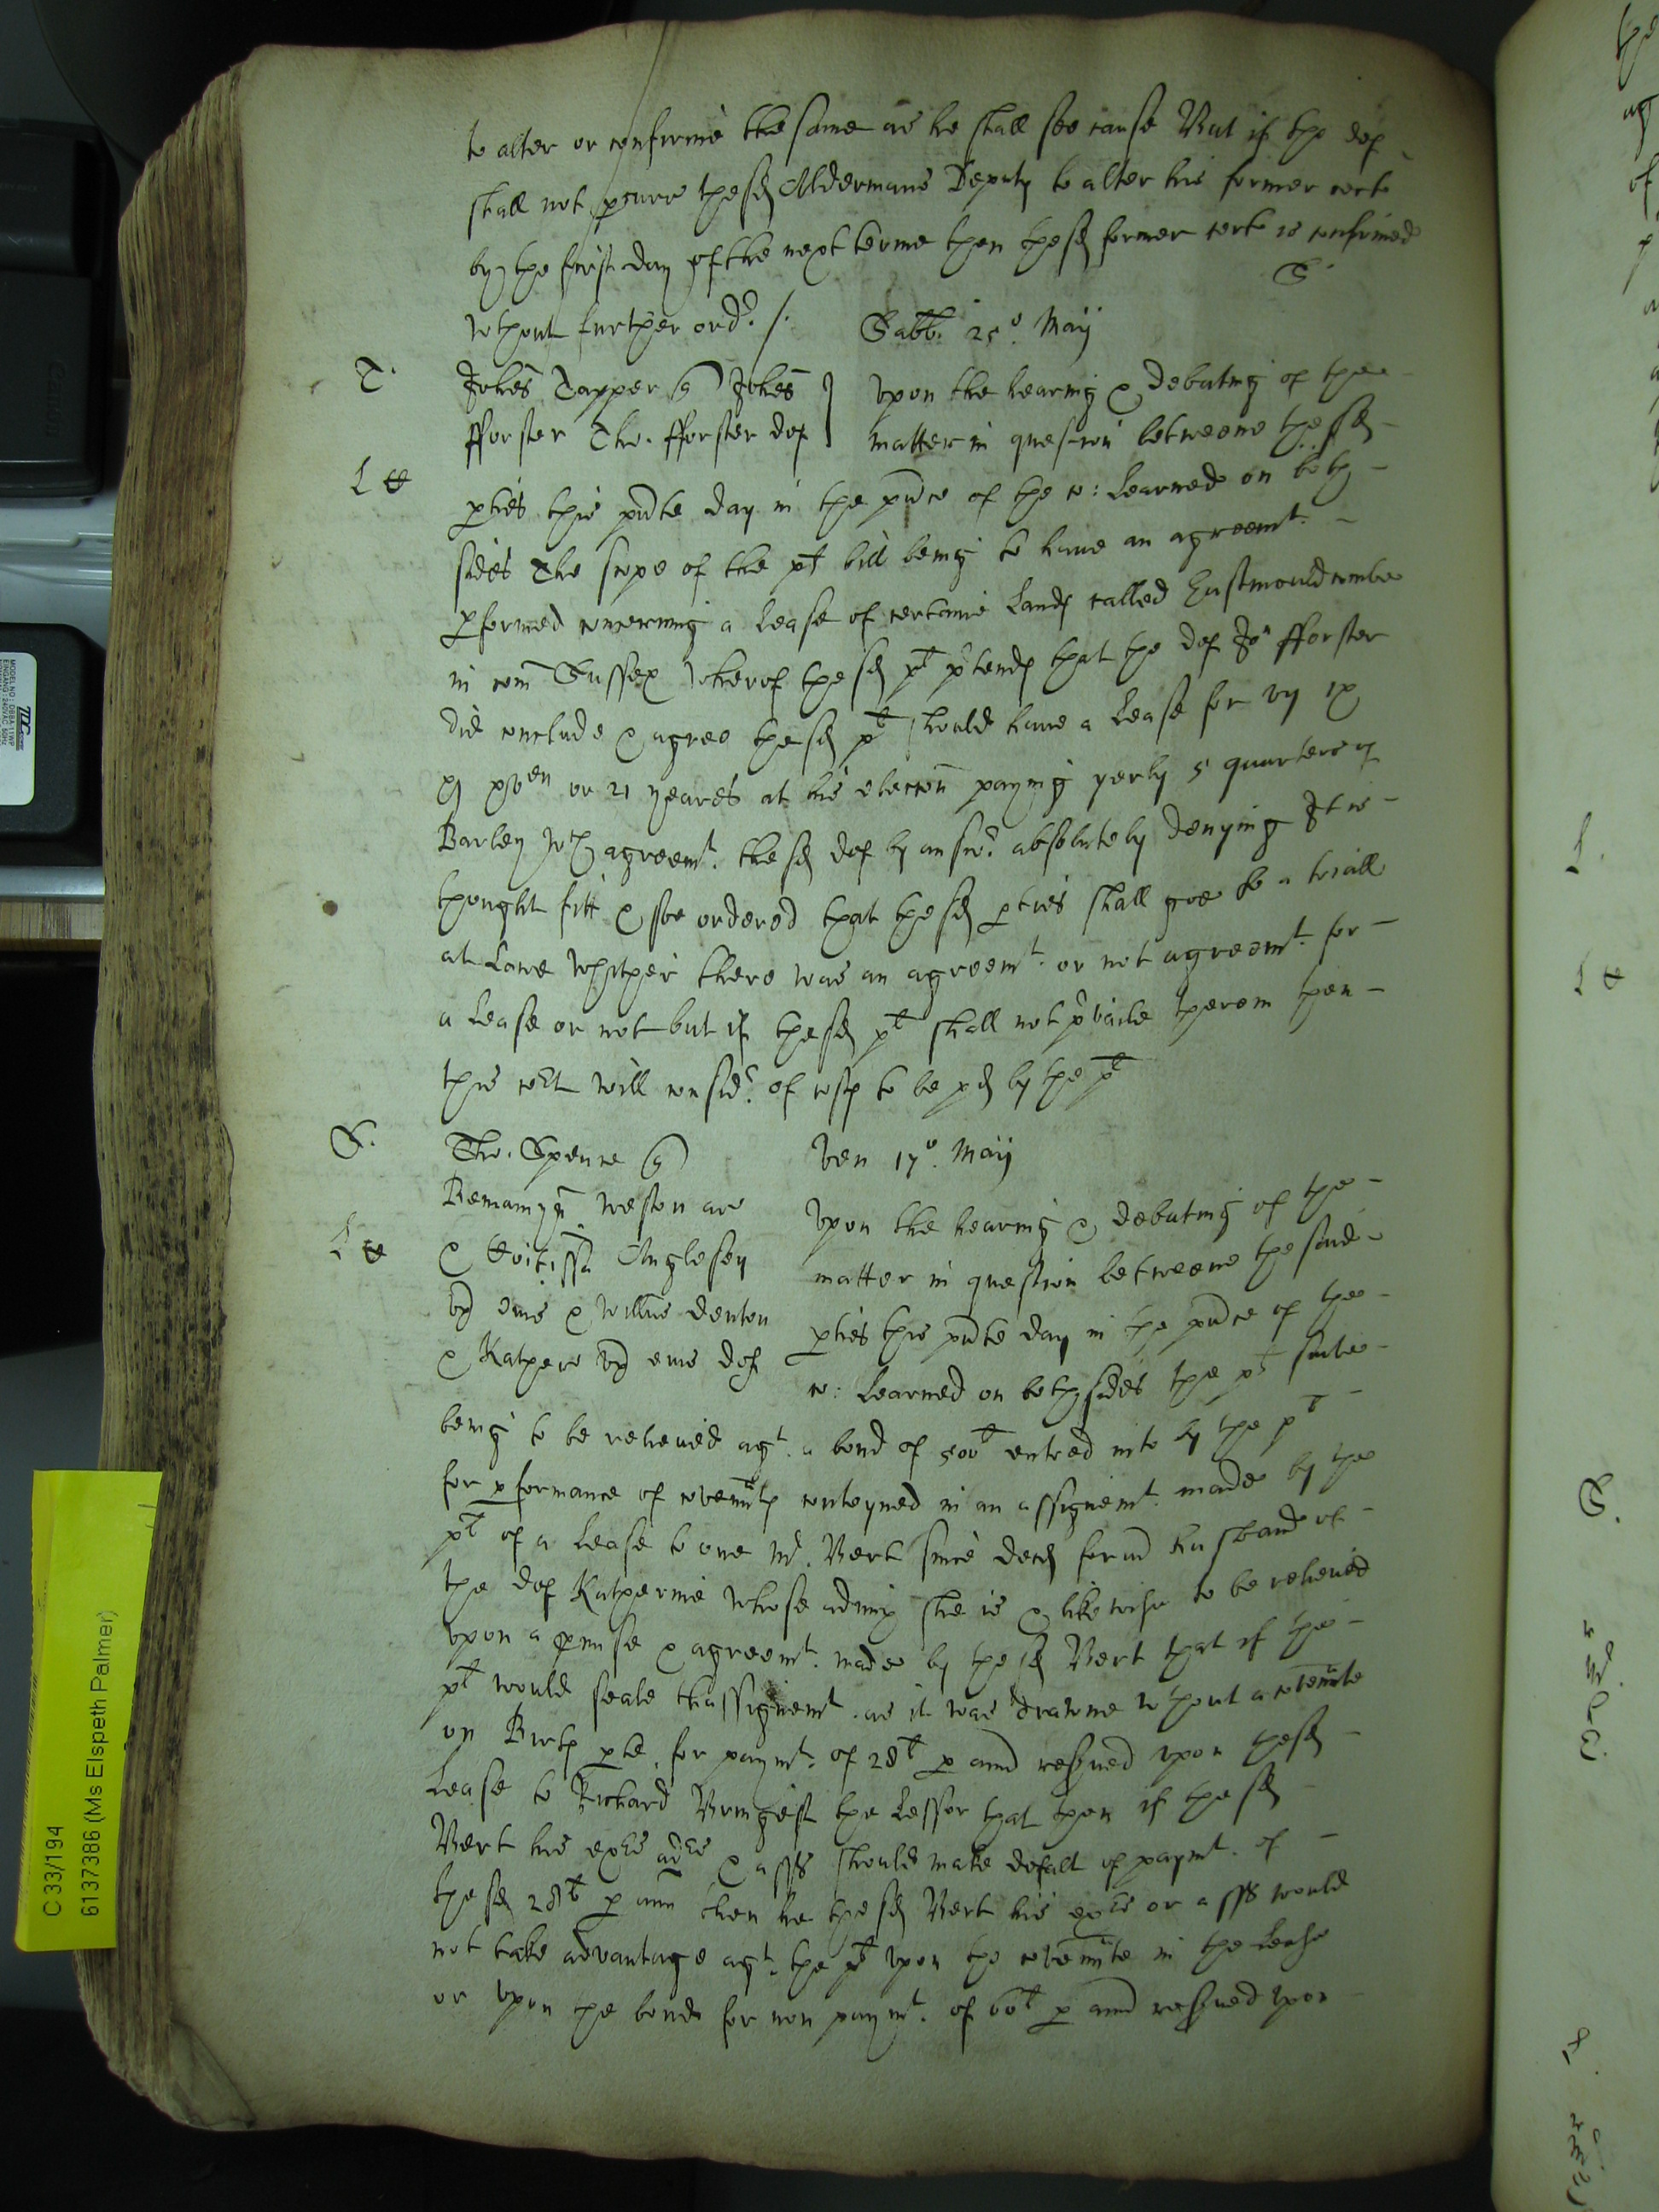 to alter or confirme the same as he shall see cause But if the def
shall not pcure the sd Aldermans Deputy to alter his former certe
by the first day of the next terme then the sd former certe is confirmed
wthout further ordr /.
S
Sabb. 25o. Maij
T.
Johes Tapper q Johes
fforster Tho. fforster def
Upon the hearing & debating of the
matter in question betweene the sd
L
pties this pnte day in the pnce of the co: Learned on both
sides The scope of the plt bill being to have an agreemt.
pformed concerning a Lease of certaine Lands called Eastmouldcombe
in com Sussex wherof the sd plt ptends that the def Jo: fforster
did conclude & agree the sd plt should have a Lease for vij ix
xj xven or 21 yeares at his eleccon paying yerly 5 quarters of
Barley wch agreemt. the sd def by answr. absolutely denying It is
thought fitt & soe ordered that the sd pties shall goe to a triall
at Lawe whither there was an agreemt. or not agreemt. for
a Lease or not but if the sd plt shall not pvaile therein then
this cort will considr. of costs to be pd by the plt
S.
Tho. Spence q
Beniamyn Weston ar
& Anglesey
ux eius & Willus denton
& Kathere ux eius def
Ven 17o. Maij
Upon the hearing & debating of the
matter in question betweene the said
pties this pnte day in the pnce of the
co: Learned on both sides the plt suite
L
being to be releived agt. a bond of 500l entred into by the plt
for pformance of covennts conteyned in an assignemt. made by the
plt of a Lease to one Mr. Bert since decd former husband of
the def Katherine whose admix she is & likewise to be releived
upon a pmise & agreemt. made by the sd Bert that if the
plt would seale thassignemt. as it was drawne wthout a covennte
on Berts pte for paymt. of 28l p annu resved upon the sd
Lease to Richard the Lessor that then if the sd
Bert his exrs adrs & asss should make defalt of paymt. of
the sd 28l p ann then he the sd Bert his exrs or asss would
not take advantage agt. the plt upon the covennte in the Lease
or upon the bond for non paymt. of 60l p annu resved upon
C 33/194
6137386 (Ms Elspeth Palmer)